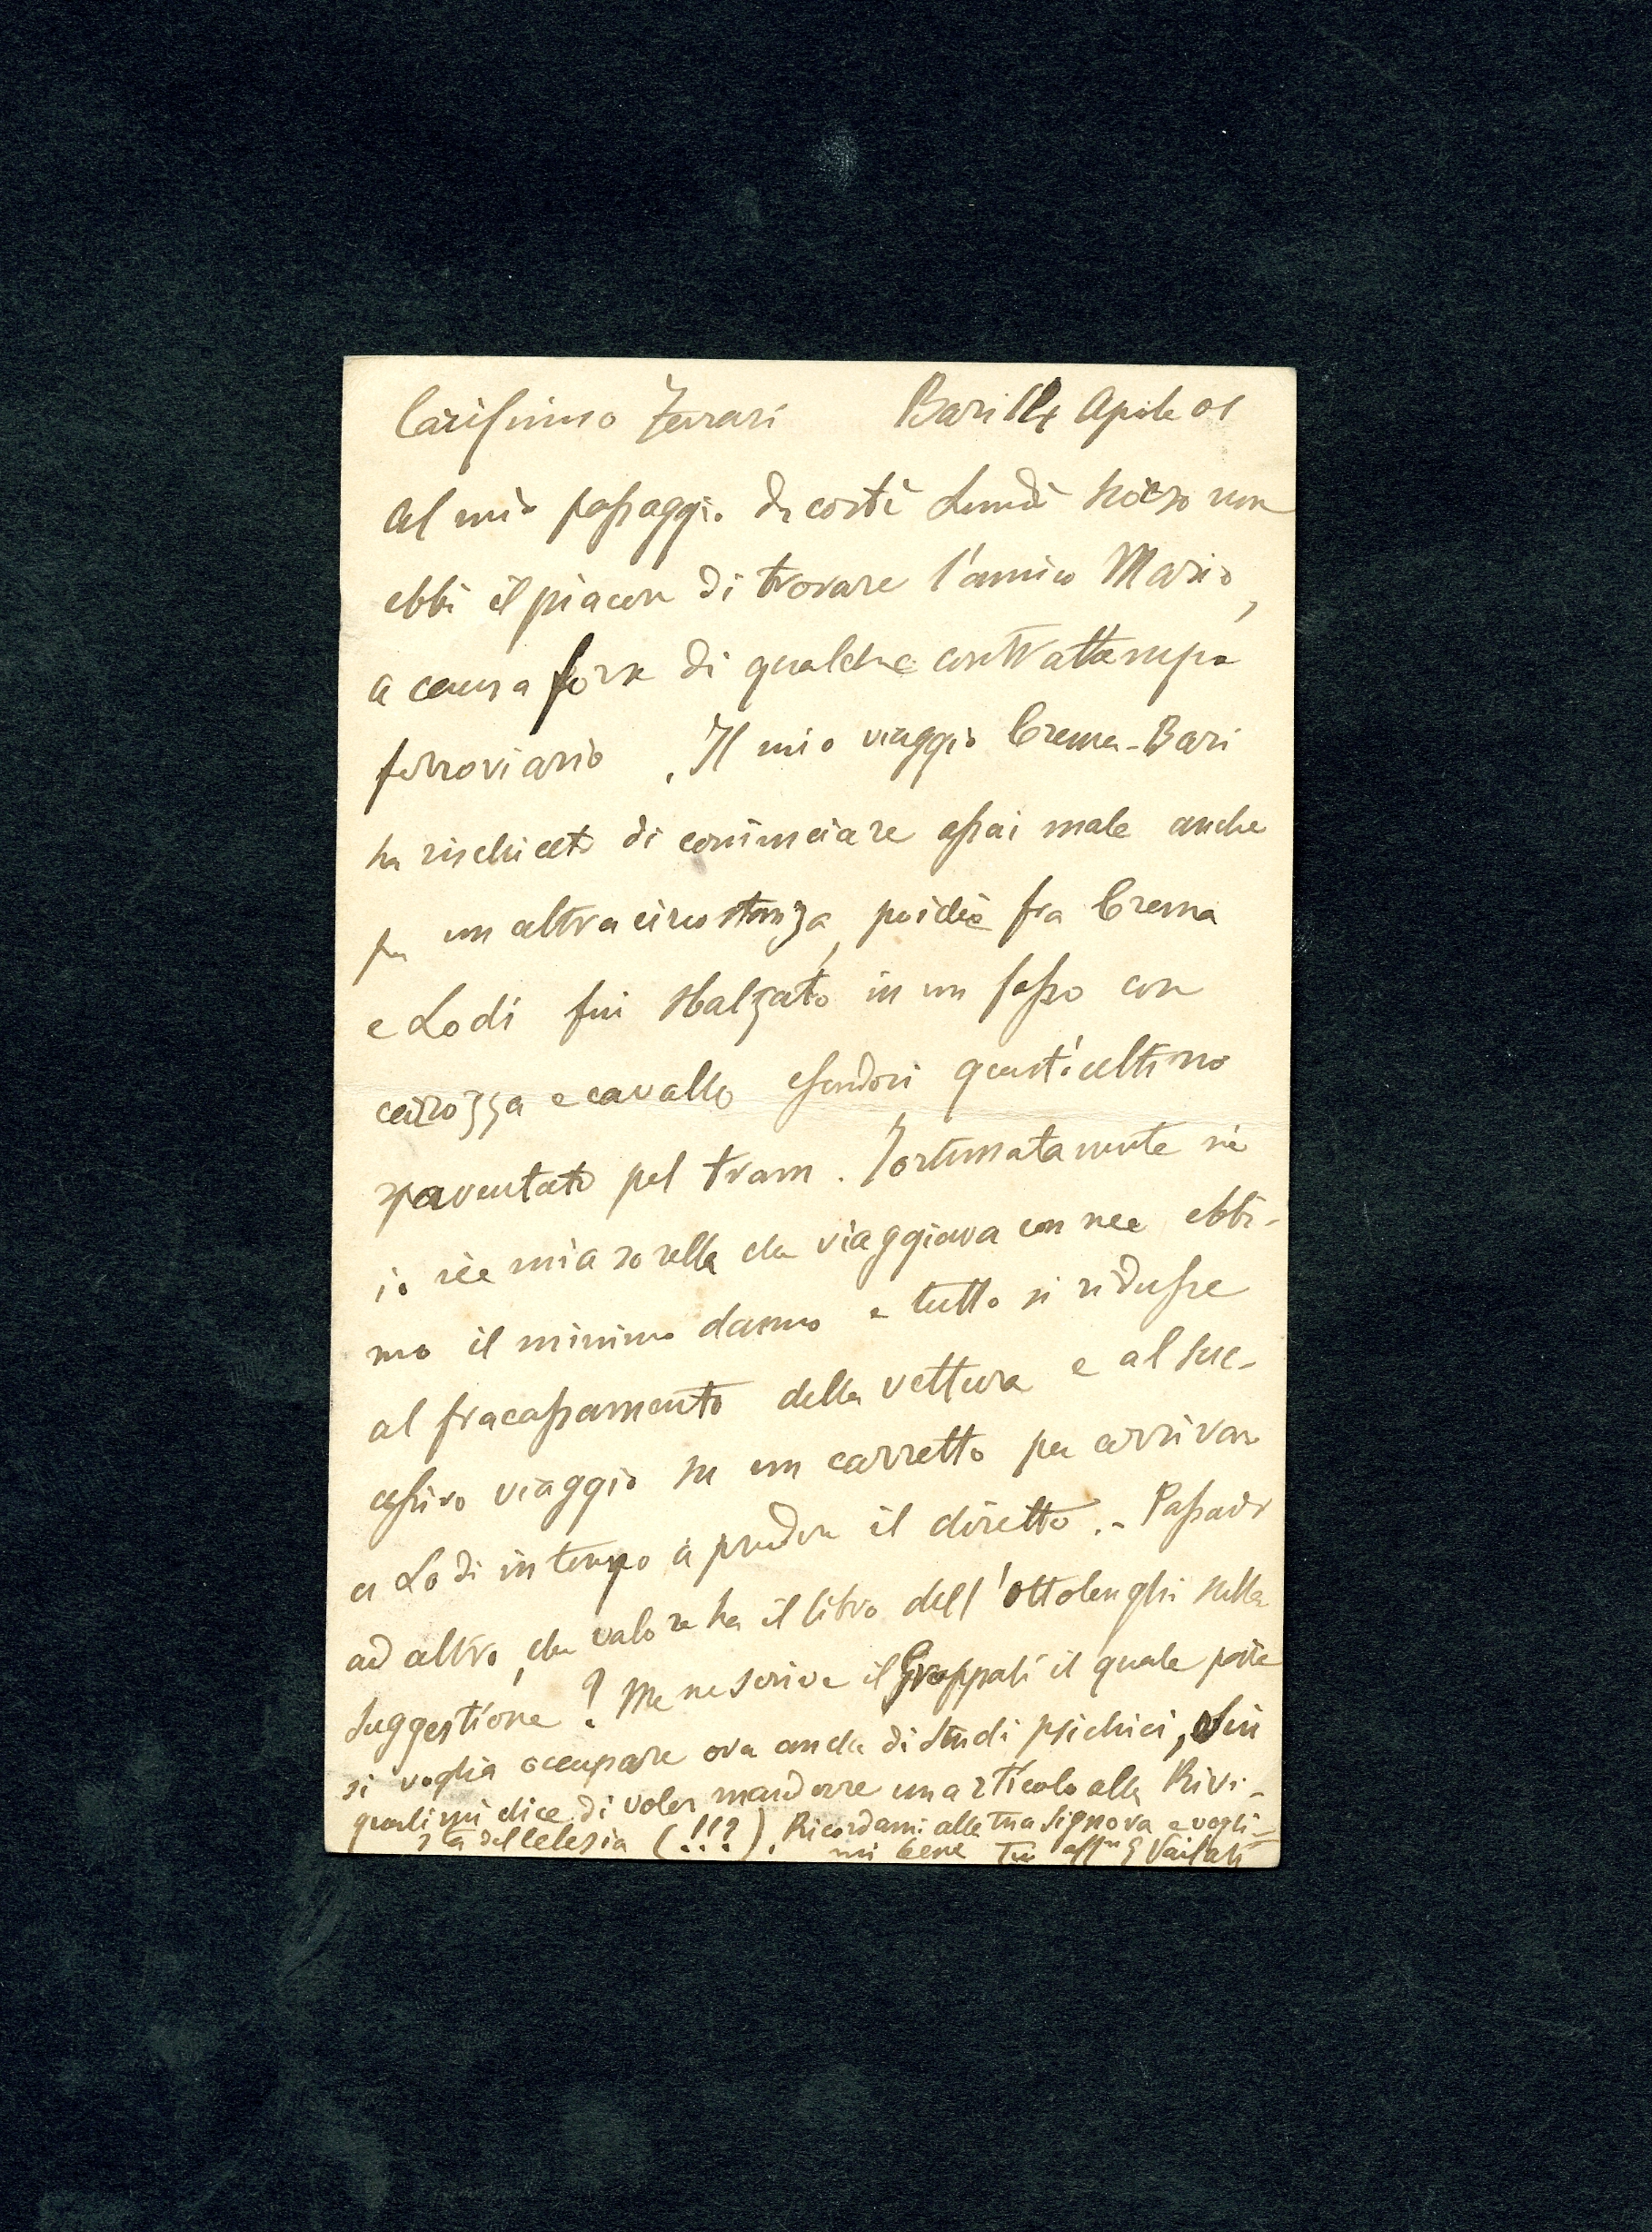 Carissimo Ferrari Bari 14 Aprile 01
Al mio passaggio da costì Lunedì scorso non
ebbi il piacere di trovare l'amico Mario,
a causa forse di qualche contrattempo
ferroviario. Il mio viaggio Crema-Bari
ha rischiato di cominciare assai male anche
per un altra circostanza, poichè fra Crema
e Lodi fui sbalzato in un fosso con
carrozza e cavallo essendosi quest'ultimo
spaventato pel tram. Fortunatamente nè
io nè mia sorella che viaggiava con me ebbi-
mo il minimo danno e tutto si ridusse
al fracassamento della vettura e al suc-
cessivo viaggio su un carretto per arrivare
a Lodi in tempo a prendere il diretto. - Passando
ad altro, che valore ha il libro dell'Ottolenghi sulla
Suggestione? Me ne scrive il Groppali il quale pare
si voglia occupare ora anche di studi psichici, sui
quali mi dice di voler mandare un articolo alla Rivi-
sta del Celesia (!!?). Ricordami alla tua Signora e vogli-
mi bene Tuo aff.mo G Vailati